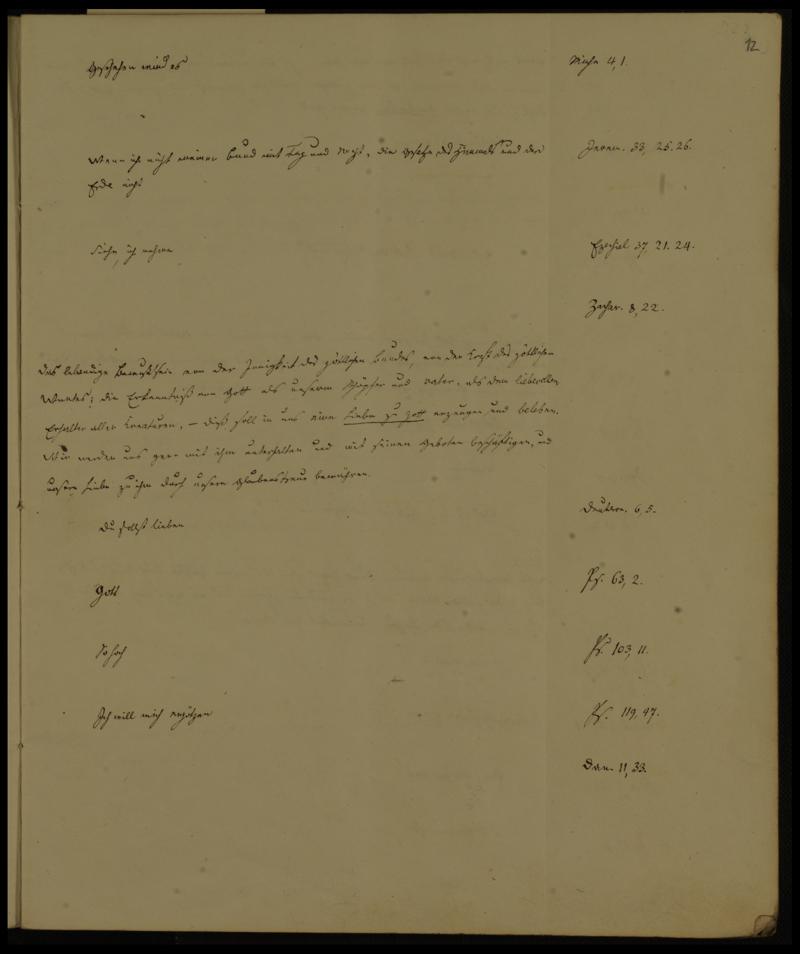 12
Geschehen wird es Micha 4,1.
Wenn ich nicht meinen Bund mit Tag und Nacht, die Gesetze des Himmels und der Jerem. 33, 25. 26.
Erde nicht
Siehe, ich nehme Ezechiel 37, 21. 24.
Zachar. 8, 22.
Das lebendige Bewußtsein von der Innigkeit des göttlichen Bundes, von der Kraft des göttlichen
Wortes; die Erkenntniß von Gott als unserem Schöpfer und Vater, als dem liebevollen
Erhalter aller Kreaturen, – dieß soll in uns eine Liebe zu Gott erzeugen und beleben.
Wir werden uns gern mit ihm unterhalten und mit seinen Geboten beschäftigen, und
unsere Liebe zu ihm durch unsere Glaubenstreue bewähren.
Du sollst lieben Deuteron. 6, 5.
Gott Ps. 63, 2.
So hoch Ps. 103, 11.
Ich will mich ergötzen Ps. 119, 47.
Dan. 11, 33.